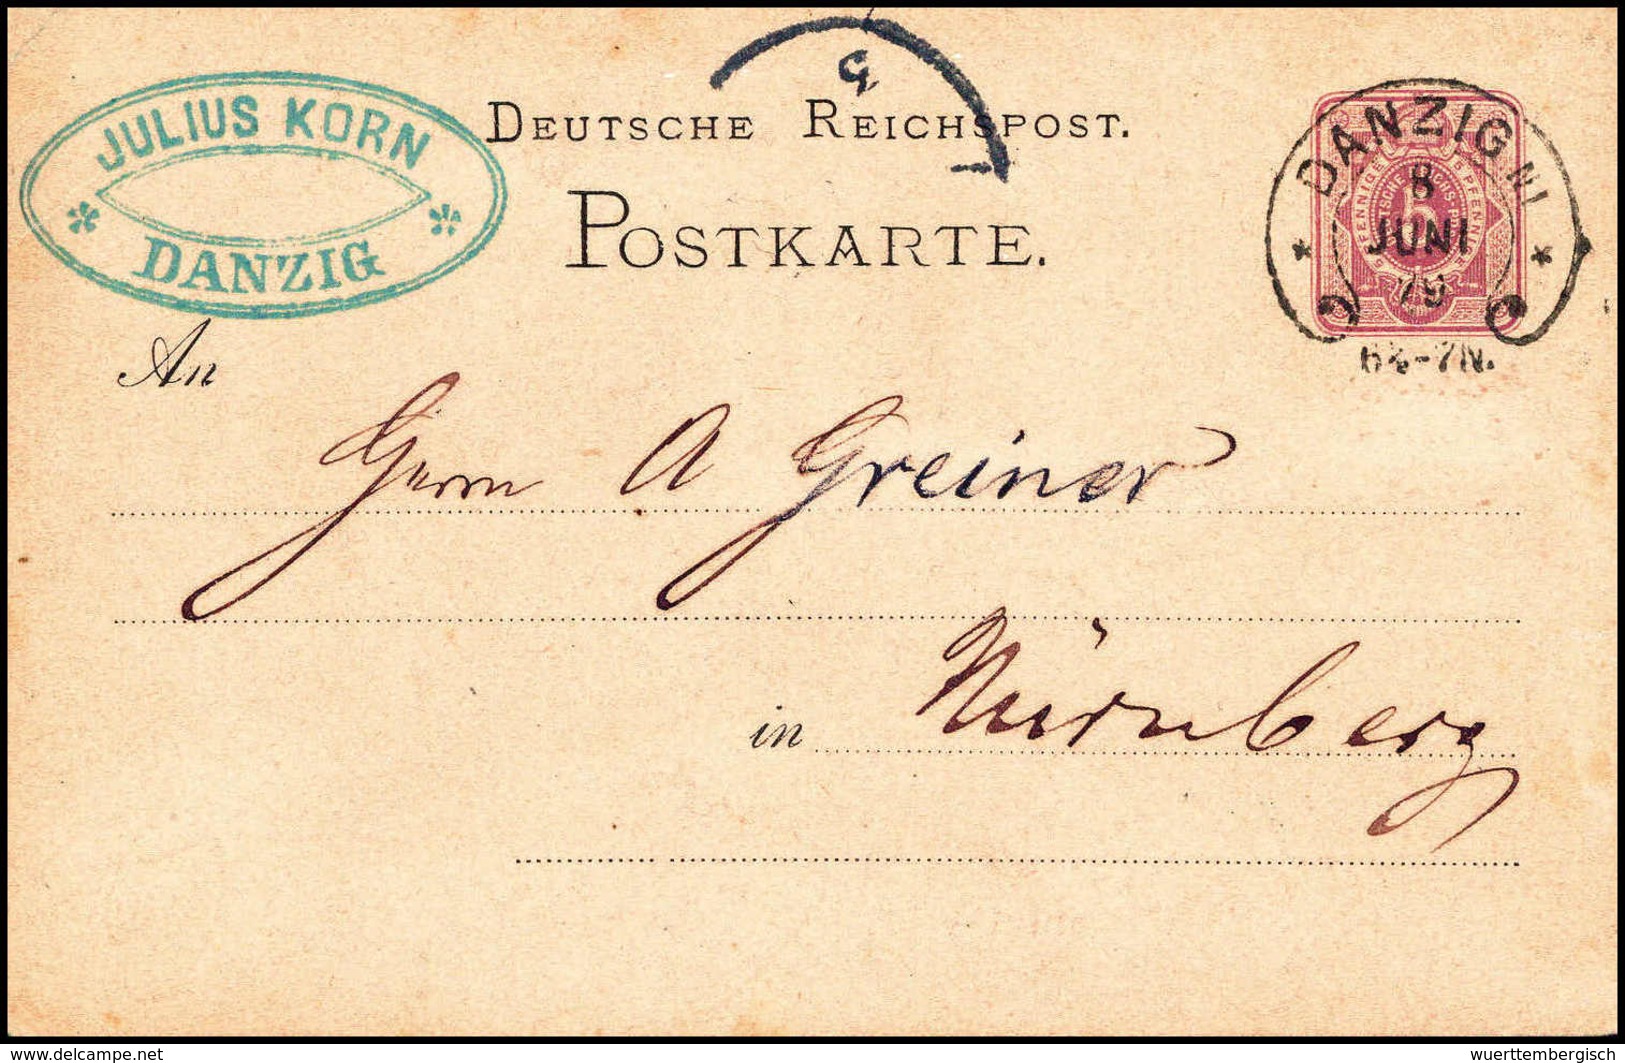 JULIUS KORN
DANZIG
DEUTSCHE REICHSPOST.
POSTKARTE.
DANZIG N1
8
JUNI
79
6½-7N.
5 PFENNIGE
5
An
Herrn A Greiner
in Nürnberg
delcampe.net
wuerttembergisch